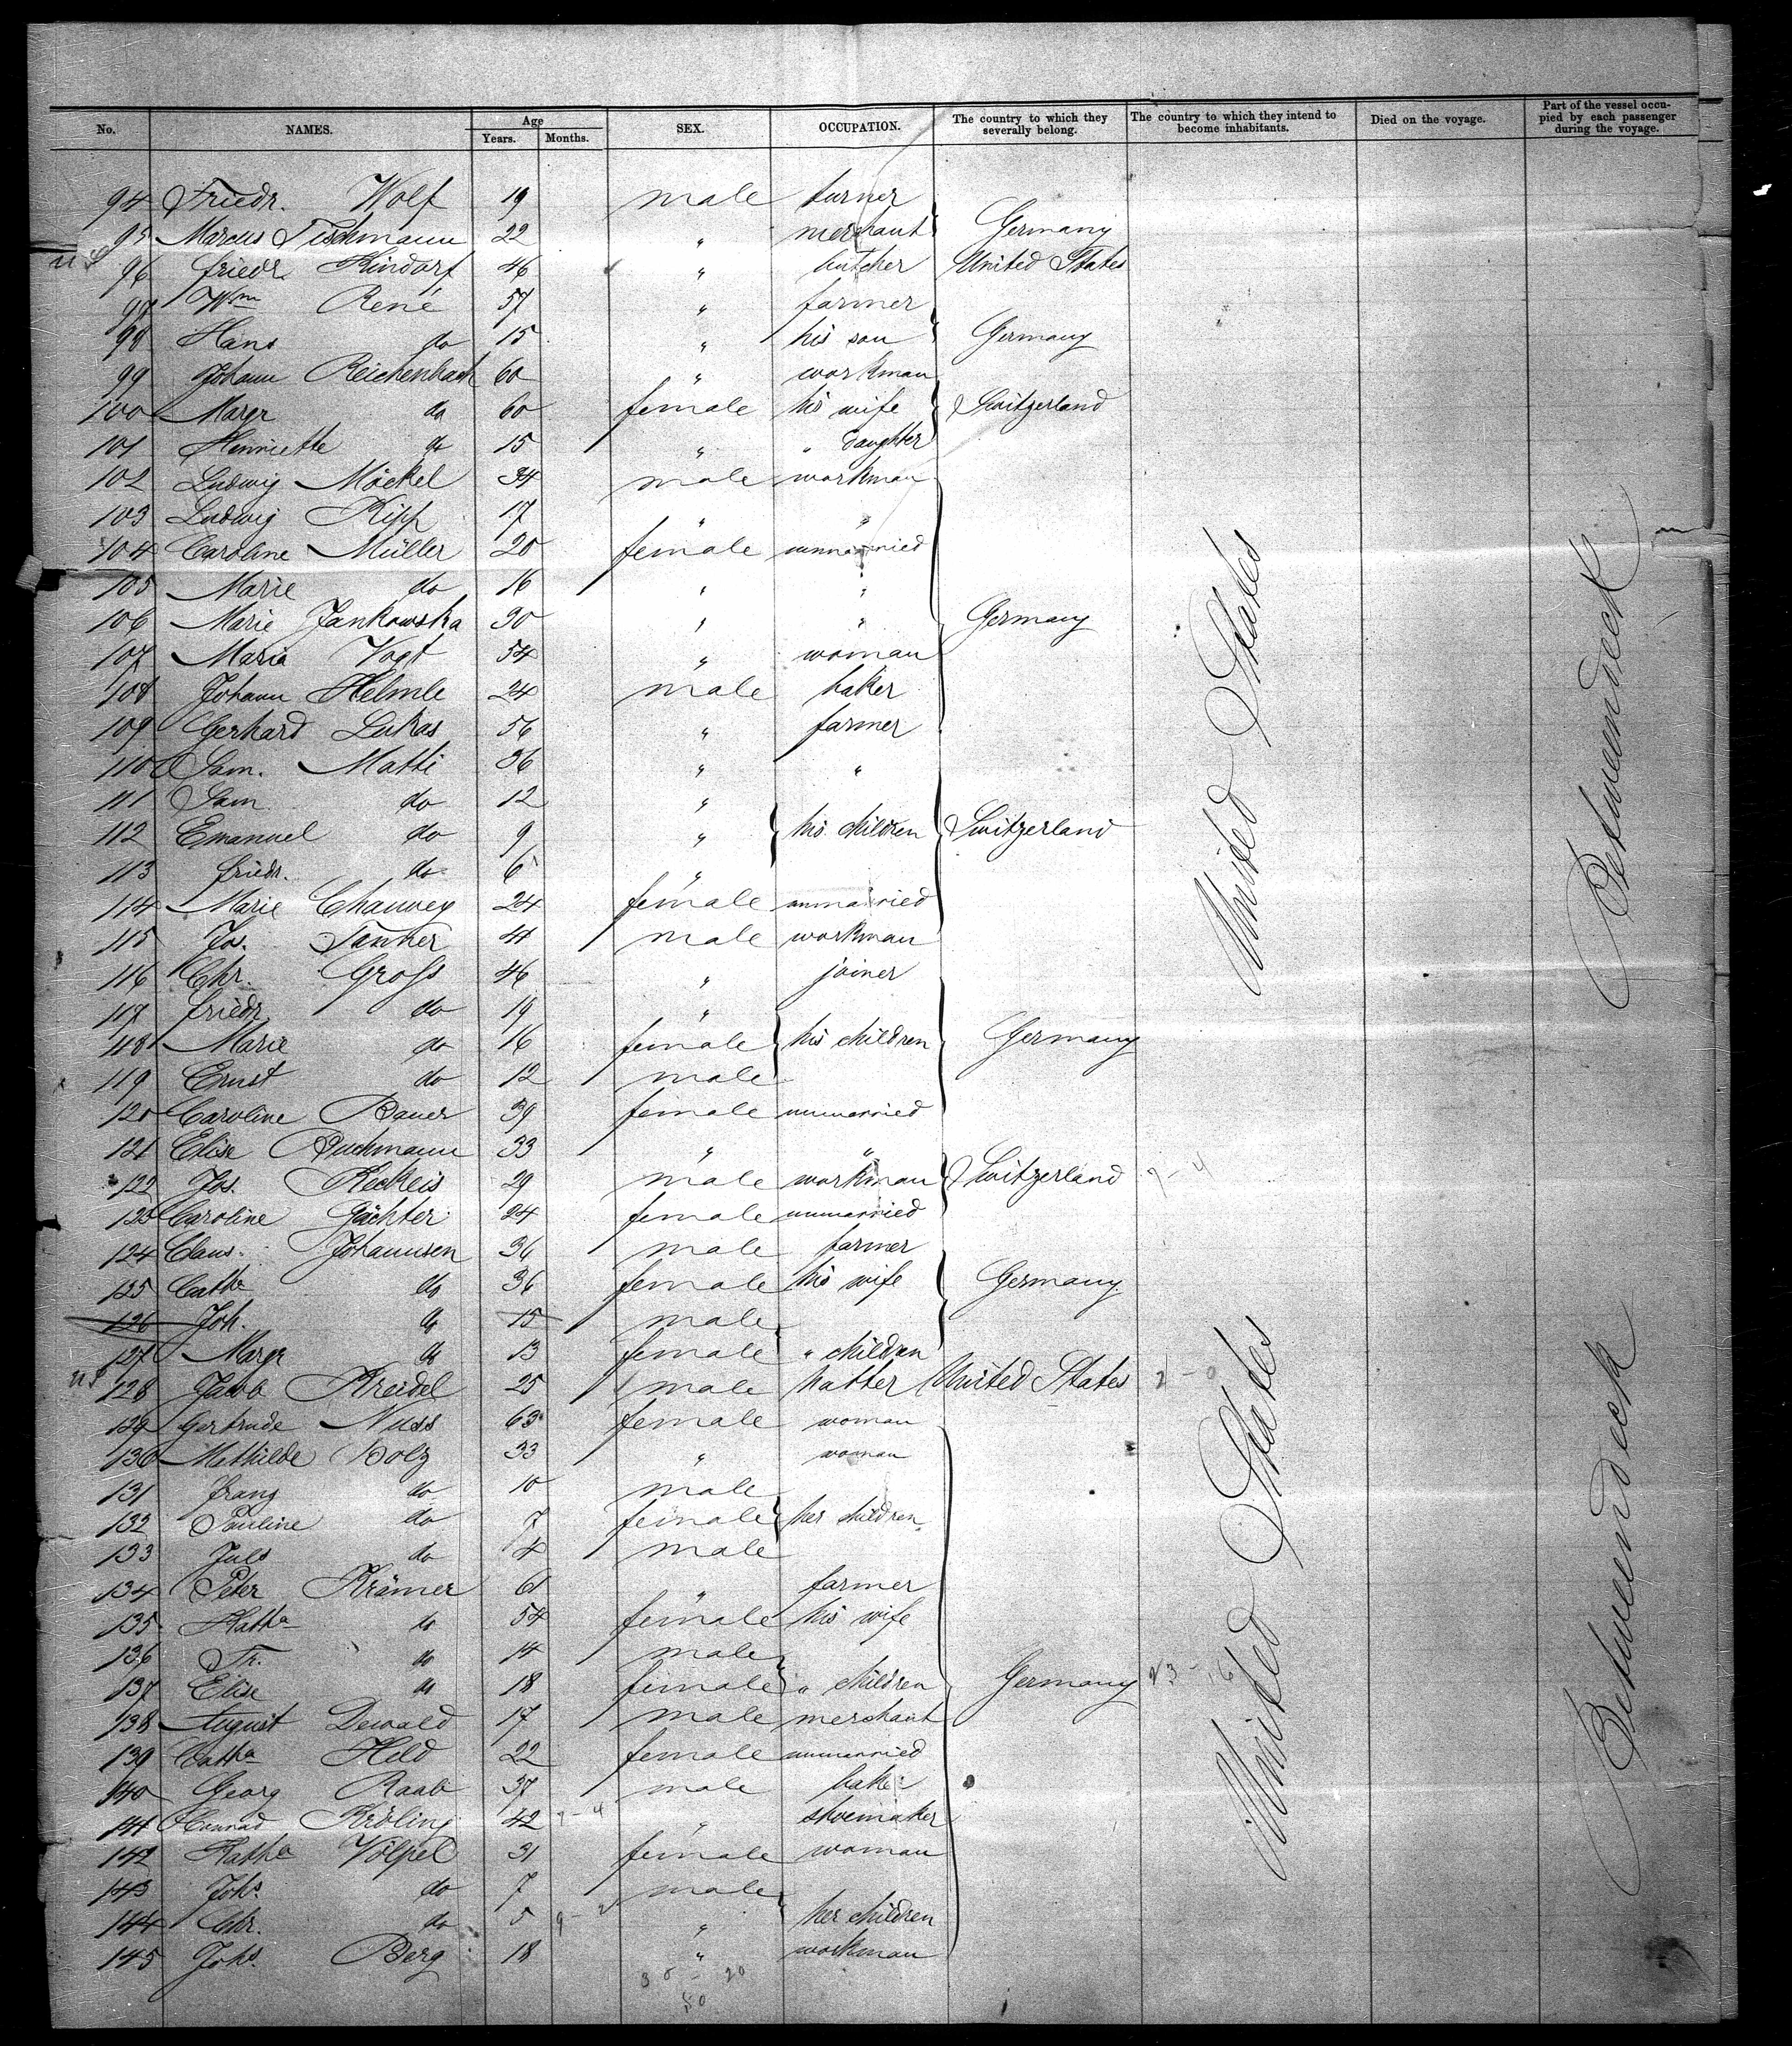 No. NAMES. Age Years. Months. SEX. OCCUPATION. The country to which they severally belong. The country to which they intend to become inhabitants. Died on the voyage. Part of the vessel occupied by each passenger during the voyage.
94 Friedr. Wolf 19 male turner
95 Marcus Tischmann 22 " merchant Germany
US 96 Friedr. Rindorf 46 " butcher United States
97 Wm René 57 " farmer
98 Hans do 15 " his son Germany
99 Johann Reichenbach 60 " workman
100 Margr do 60 female his wife Switzerland
101 Henriette do 15 " " daughter
102 Ludwig Möckel 34 male workman
103 Ludwig Ripp 17 " "
104 Caroline Müller 20 female unmarried
105 Marie do 16 " "
106 Marie Jankowska 30 " " Germany
107 Maria Vogt 54 " woman
108 Johann Helmle 24 male baker
109 Gerhard Lukas 56 " farmer
110 Sam. Matti 36 " "
111 Sam do 12 "
112 Emanuel do 9 " his children Switzerland
113 Friedr. do 6 "
114 Marie Chauvey 24 female unmarried
115 Jos. Tanner 41 male workman
116 Chr. Gross 46 " joiner
117 Friedr do 19 "
118 Marie do 16 female his children Germany
119 Ernst do 12 male
120 Caroline Bauer 39 female unmarried
121 Elise Buchmann 33 " "
122 Jos. Reckeis 29 male workman Switzerland 7-4
123 Caroline Gächter 24 female unmarried
124 Claus. Johannsen 36 male farmer
125 Catha do 36 female his wife Germany.
126 Joh. do 15 male
127 Margr do 13 female " children
US 128 Jacob Kreidel 25 male hatter United States 2-0
129 Gertrude Nuss 63 female woman
130 Mathilde Bolz 33 " woman
131 Franz do 10 male
132 Pauline do 7 female her children
133 Juls do 4 male
134 Peter Krämer 61 " farmer
135 Katha do 54 female his wife
136 Fr. do 14 male
137 Elise do 18 female " children Germany 23-16
138 August Dewald 17 male merchant
139 Catha Held 22 female unmarried
140 Georg Raab 37 male baker
141 Conrad Kröling 42 7-4 " shoemaker
142 Katha Völpel 31 female woman
143 Johs. do 7 male
144 Chr. do 5 9-2 " her children
145 Johs. Berg 18 " workman
30-20
50
United States
United States
Betweendeck
Betweendeck